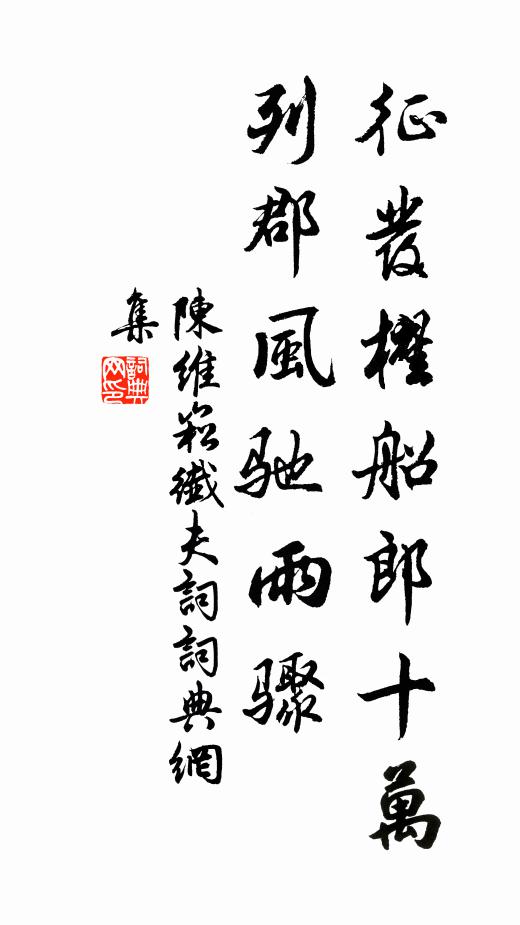 征發櫂船郎十萬
列郡風馳雨驟
陳維崧纖夫詞詞典網
集
詞典
网印